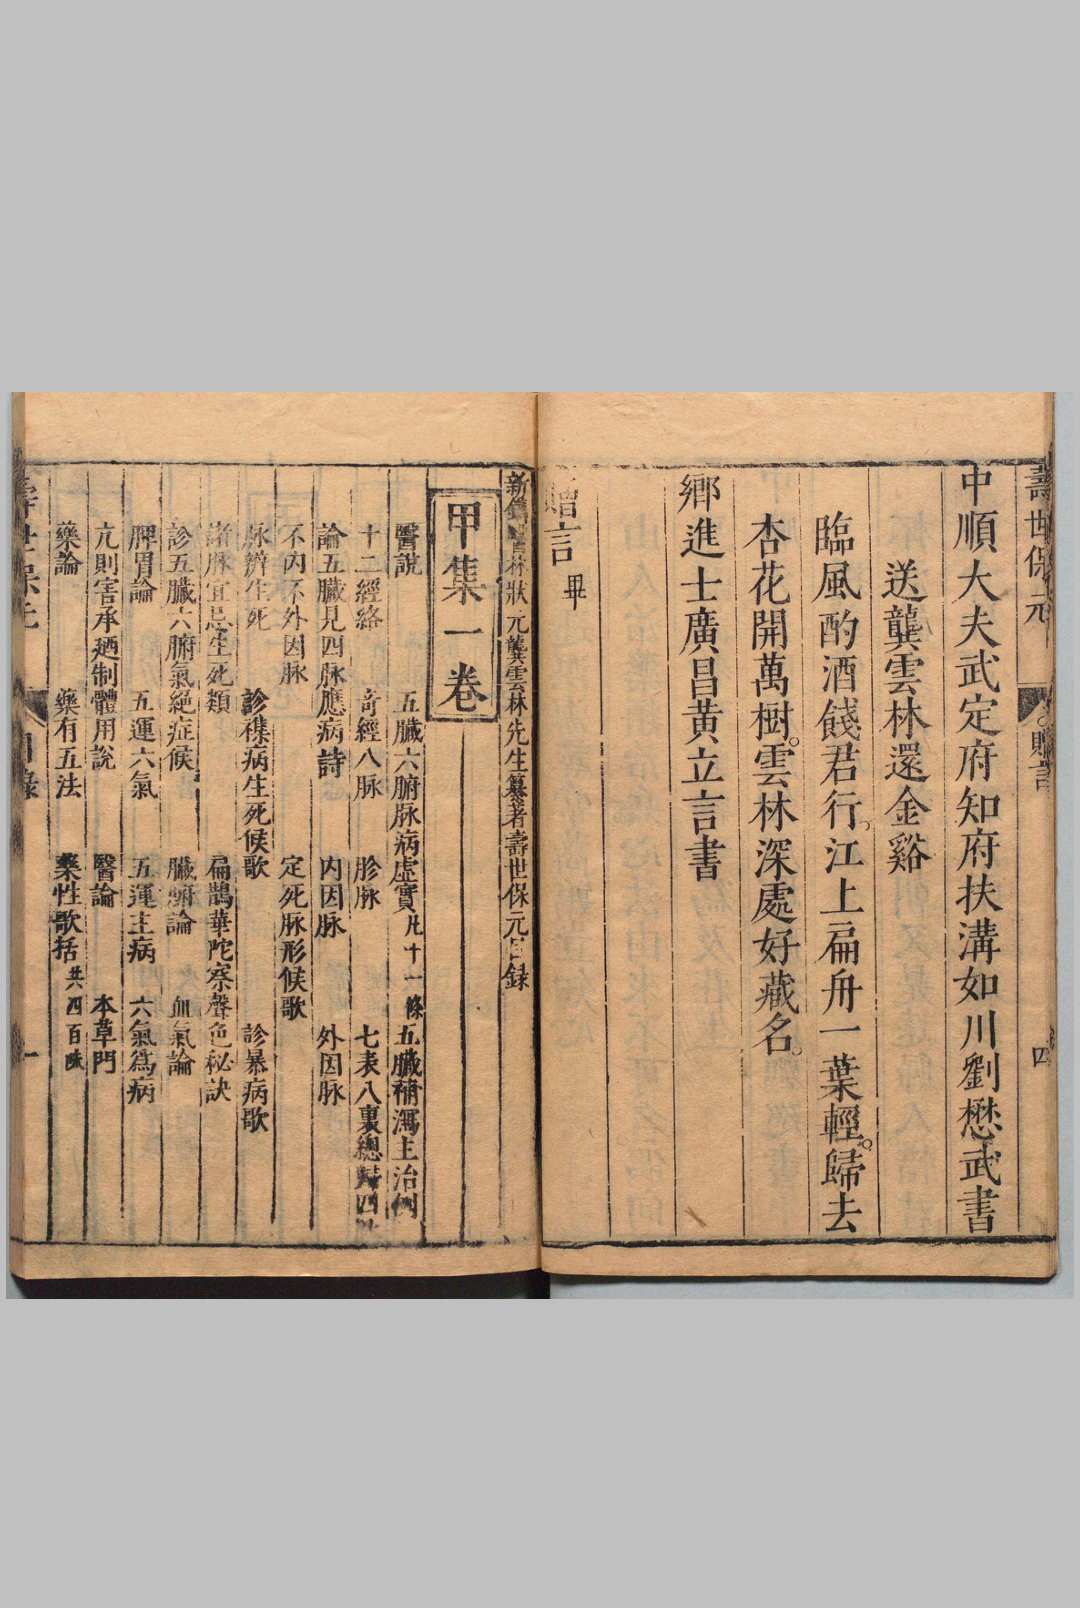 壽世保元
贈言
四
中順大夫武定府知府扶溝如川劉懋武書
送龔雲林還金谿
臨風酌酒餞君行江上扁舟一葉輕歸去
杏花開萬樹雲林深處好藏名
鄉進士廣昌黄立言書
贈言畢
林狀元龔雲林先生纂著壽世保元目録
甲集一卷
醫說 五臟六腑脉病虛實凡十一條 五臟補瀉主治例
十二經絡 奇經八脉 胗脉 七表八裏總歸四
論五臟見四脉應病詩 内因脉 外因脉
不内不外因脉 定死脉形候歌
脉辨生死 診襍病生死候歌 診暴病歌
諸脉宜忌生死類 扁鵲華陀察聲色秘訣
診五臟六腑氣絕症候 臟腑論 血氣論
脾胃論 五運六氣 五運主病 六氣爲病
亢則害承廼制體用說 醫論 本草門
藥論 藥有五法 藥性歌括共四百味
壽世保元
目錄
一